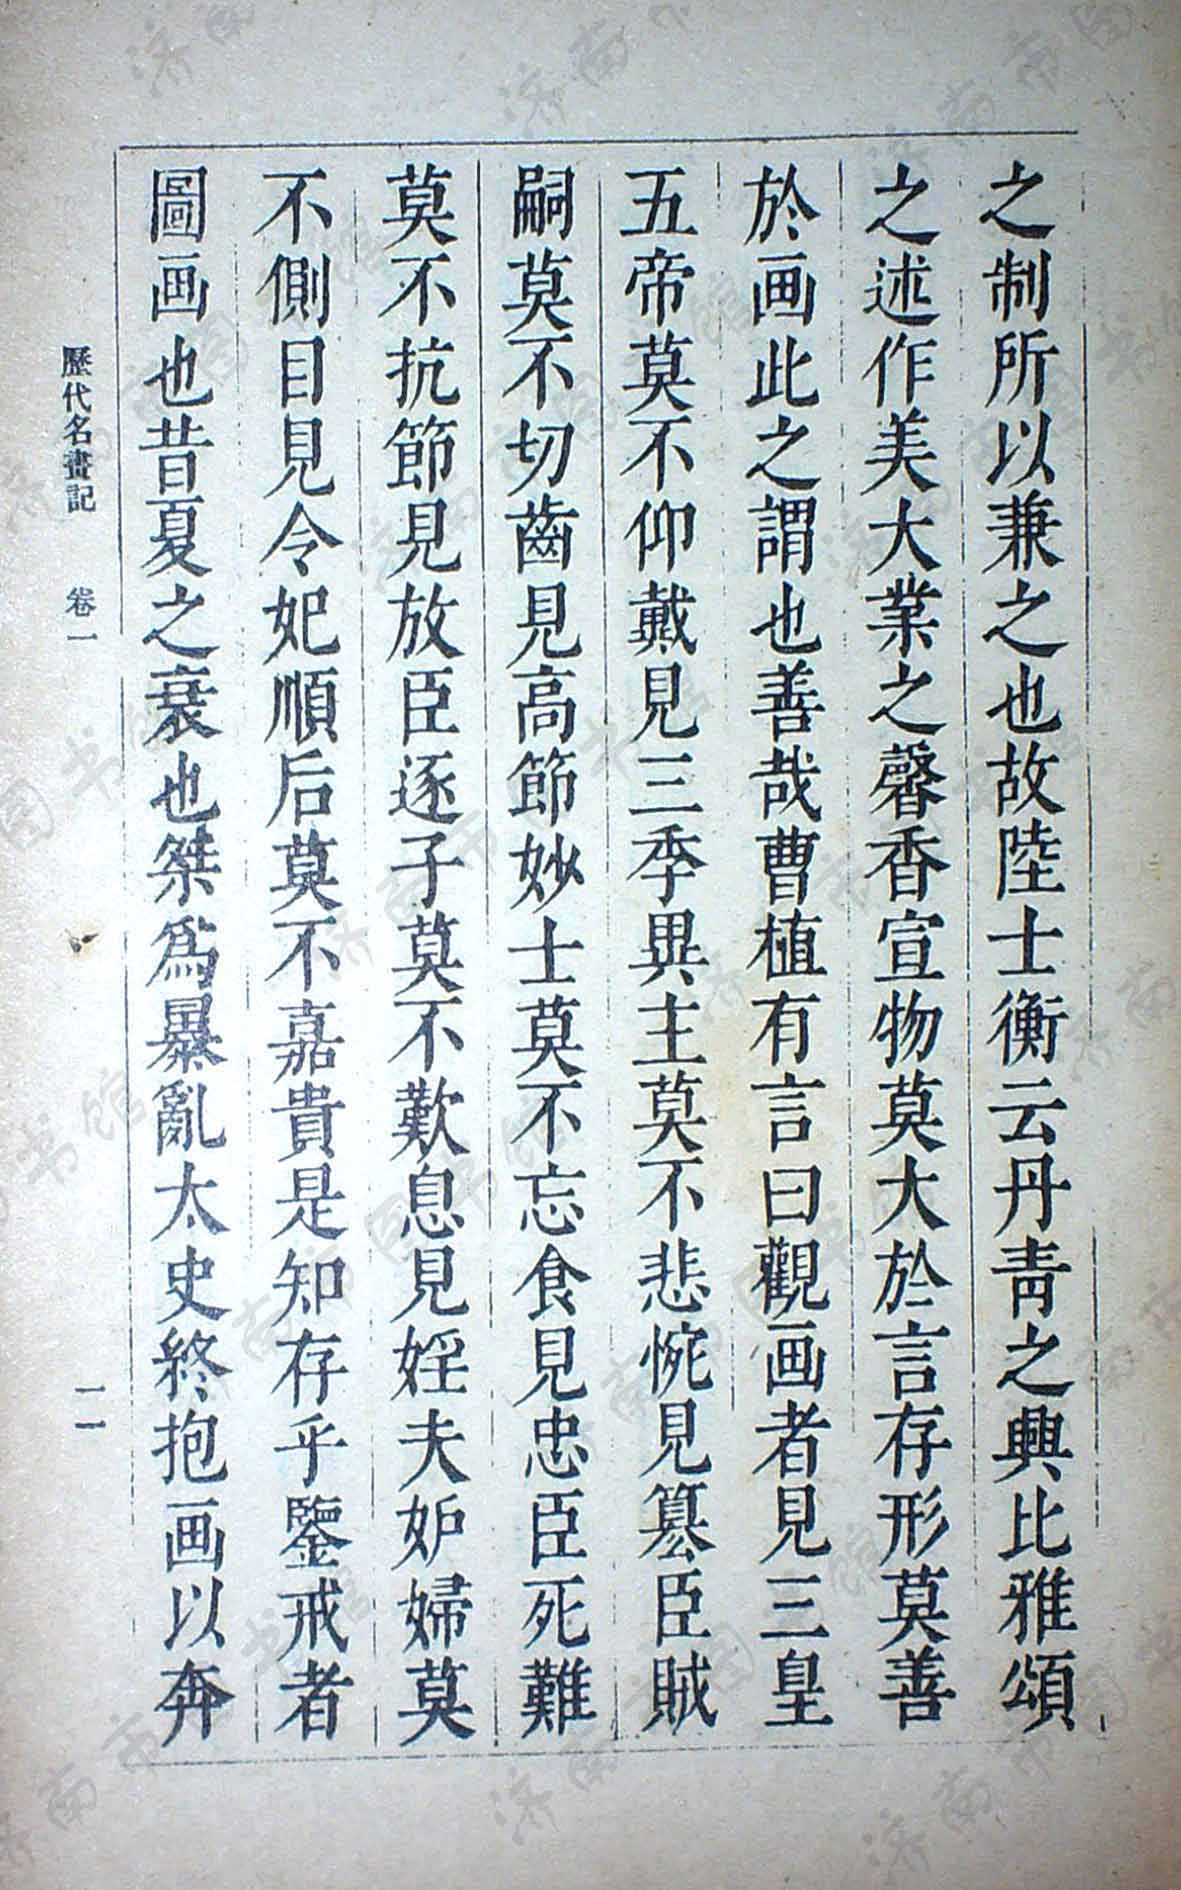 之制所以兼之也故陸士衡云丹青之興比雅頌
之述作美大業之馨香宣物莫大於言存形莫善
於画此之謂也善哉曹植有言曰觀画者見三皇
五帝莫不仰戴見三季異主莫不悲惋見篡臣賊
嗣莫不切齒見高節妙士莫不忘食見忠臣死難
莫不抗節見放臣逐子莫不歎息見婬夫妒婦莫
不側目見令妃順后莫不嘉貴是知存乎鑒戒者
圖画也昔夏之衰也桀爲暴亂太史終抱画以奔
歷代名畫記 卷一 一一
济南市图书馆